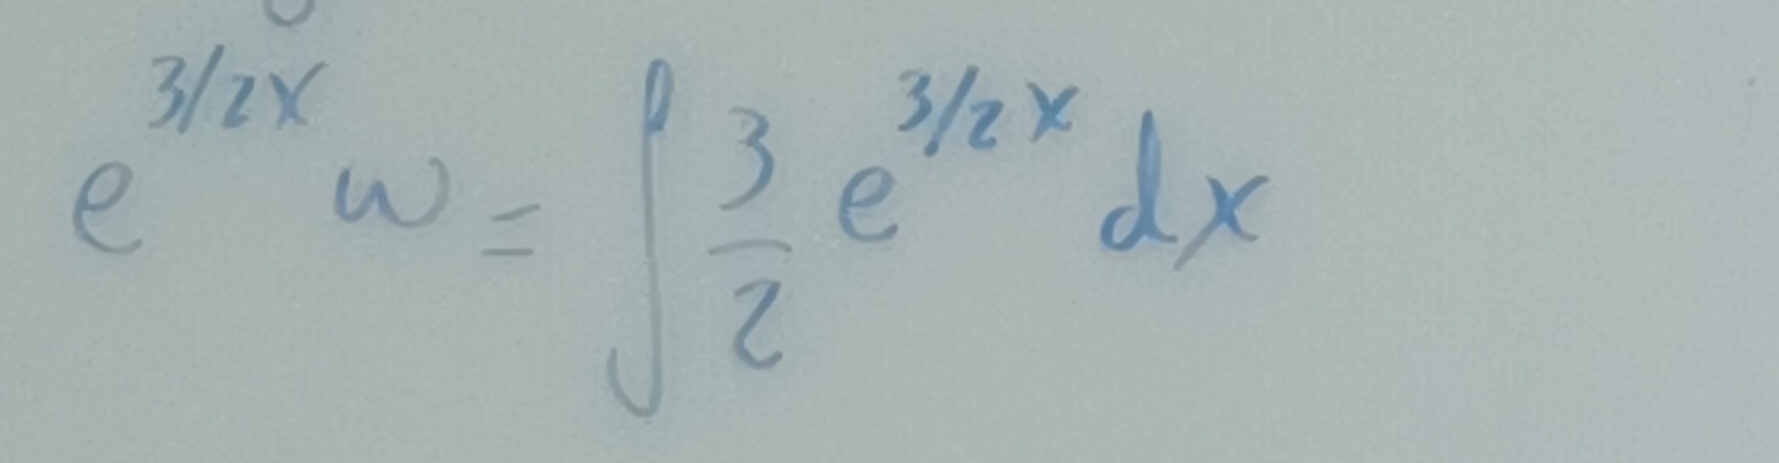 e^{3/2x} w = ∫ \frac{3}{2} e^{3/2x} dx